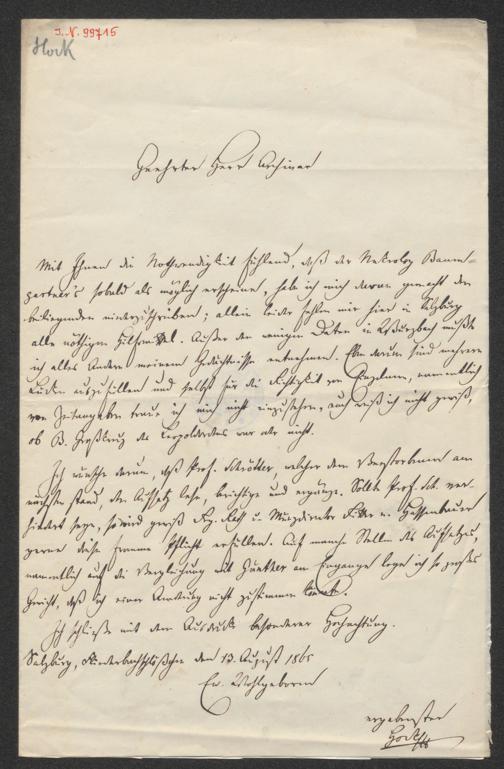 I. N. 99715
Hock
Geehrter Herr Archivar
Mit Ihnen die Nothwendigkeit fühlend, daß der Nekrolog Baum-
gartner's sobald als möglich erscheine, habe ich mich daran gemacht den
beiliegenden niederzuschreiben; allein leider fehlen mir hier in Salzburg
alle nöthigen Hilfsmittel. Außer den wenigen Daten in Wurzbach mußte
ich alles Andere meinem Gedächtnisse entnehmen. Eben darum sind mehrere
Lücken auszufüllen und selbst für die Richtigkeit von Einzelnem, namentlich
von Zeitangaben traue ich mir nicht einzustehen, auch weiß ich nicht gewiß,
ob B. Großkreuz des Leopoldordens war oder nicht.
Ich wünsche darum, daß Prof. Schrötter, welcher dem Verstorbenen am
nächsten stand, den Aufsatz lese, berichtige und ergänze. Sollte Prof. Sch. ver-
hindert seyn, so wird gewiß u. Münzdirektor v. Hassenbauer
gerne diese fromme Pflicht erfüllen. Auf manche Stellen des Aufsatzes,
namentlich auf die Vergleichung mit am Eingange lege ich so großes
Gewicht, daß ich einer Änderung nicht zustimmen könnte.
Ich schließe mit dem Ausdrucke besonderer Hochachtung.
Salzburg, den 13. August 1865
Ew. Wohlgeboren
ergebenster
Hock